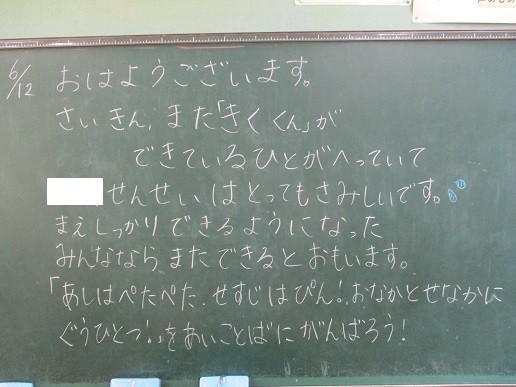 6/12 おはようございます。
さいきん、また「きくくん」が
できているひとがへっていて
せんせいはとってもさみしいです。
まえしっかりできるようになった
みんなならまたできるとおもいます。
「あしはぺたぺた、せすじはぴん!、おなかとせなかに
ぐうひとつ!」をあいことばにがんばろう!